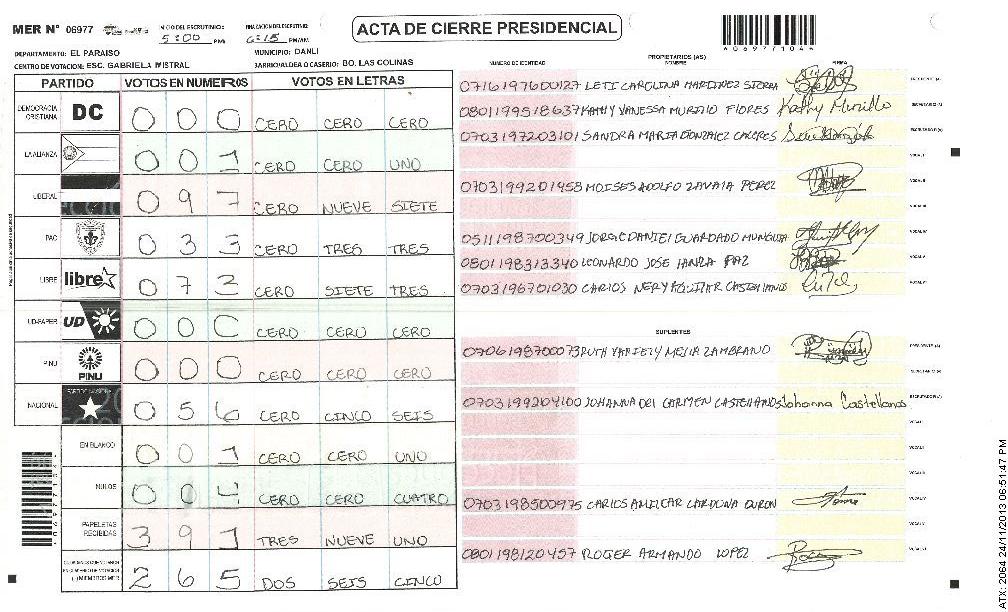 MER Nº 06977
INICIO DEL ESCRUTINIO: 5:00 PM
FINALIZACION DEL ESCRUTINIO: 6:15 PM/AM
ACTA DE CIERRE PRESIDENCIAL
0669771044
DEPARTAMENTO: EL PARAISO
MUNICIPIO: DANLI
CENTRO DE VOTACION: ESC. GABRIELA MISTRAL
BARRIO/ALDEA O CASERIO: BO. LAS COLINAS
PARTIDO VOTOS EN NUMEROS VOTOS EN LETRAS
DEMOCRACIA CRISTIANA DC 0 0 0 CERO CERO CERO
LA ALIANZA 0 0 1 CERO CERO UNO
LIBERAL 0 9 7 CERO NUEVE SIETE
PAC 0 3 3 CERO TRES TRES
LIBRE libre 0 7 3 CERO SIETE TRES
UD-FAPER UD 0 0 0 CERO CERO CERO
PINU PINU 0 0 0 CERO CERO CERO
NACIONAL 0 5 6 CERO CINCO SEIS
EN BLANCO 0 0 1 CERO CERO UNO
NULOS 0 0 4 CERO CERO CUATRO
PAPELETAS RECIBIDAS 3 9 1 TRES NUEVE UNO
2 6 5 DOS SEIS CINCO
NUMERO DE IDENTIDAD PROPIETARIOS (AS) NOMBRE FIRMA
0716197600127 LETI CAROLINA MARTINEZ SIERRA
0801199518637 KATHY VANESSA MURILLO FLORES Kathy Murillo
0703197203101 SANDRA MARIA GONZALEZ CACERES
0703199201958 MOISES ADOLFO ZAVALA PEREZ
0511198700349 JORGE DANIEL GUARDADO MUNGUIA
0801198313340 LEONARDO JOSE PAZ
0703196701030 CARLOS NERY AGUILAR CASTELLANOS
SUPLENTES
0706198700073 RUTH YARIELY MEJIA ZAMBRANO
0703199204100 JOHANNA DEL CARMEN CASTELLANOS Johanna Castellanos
0703198500975 CARLOS AMILCAR CARDONA DURON
0801198120457 ROGER ARMANDO LOPEZ
ATX: 2064 24/11/2013 06:51:47 PM